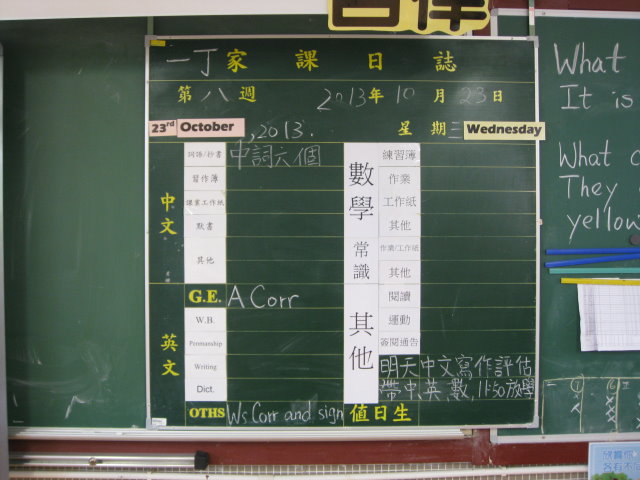 一丁家課日誌
第八週 2013年10月23日
23rd October, 2013. 星期三 Wednesday
中文
詞語/抄書 中詞六個
習作簿
課業工作紙
默書
其他
英文
G.E. A Corr
W.B.
Penmanship
Writing
Dict.
OTHS Ws Corr and sign
數學
練習簿
作業
工作紙
其他
常識
作業/工作紙
其他
其他
閱讀
運動
簽閱通告
明天中文寫作評估
帶中,英,數,11:50放學
值日生
What
It is
What
They
yellow